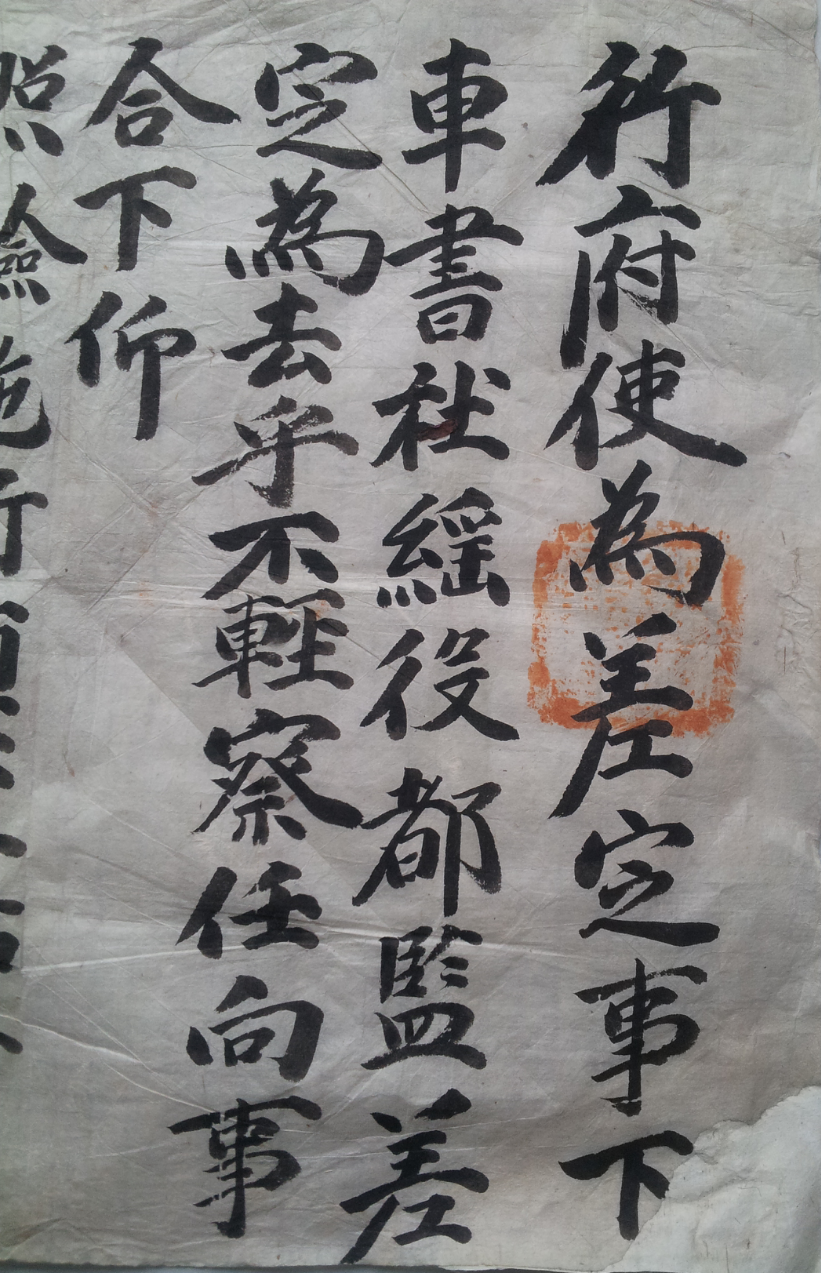 行府使為差定事下
車書社繇役都監差
定為去乎不輕察任向事
合下仰
照驗施行須